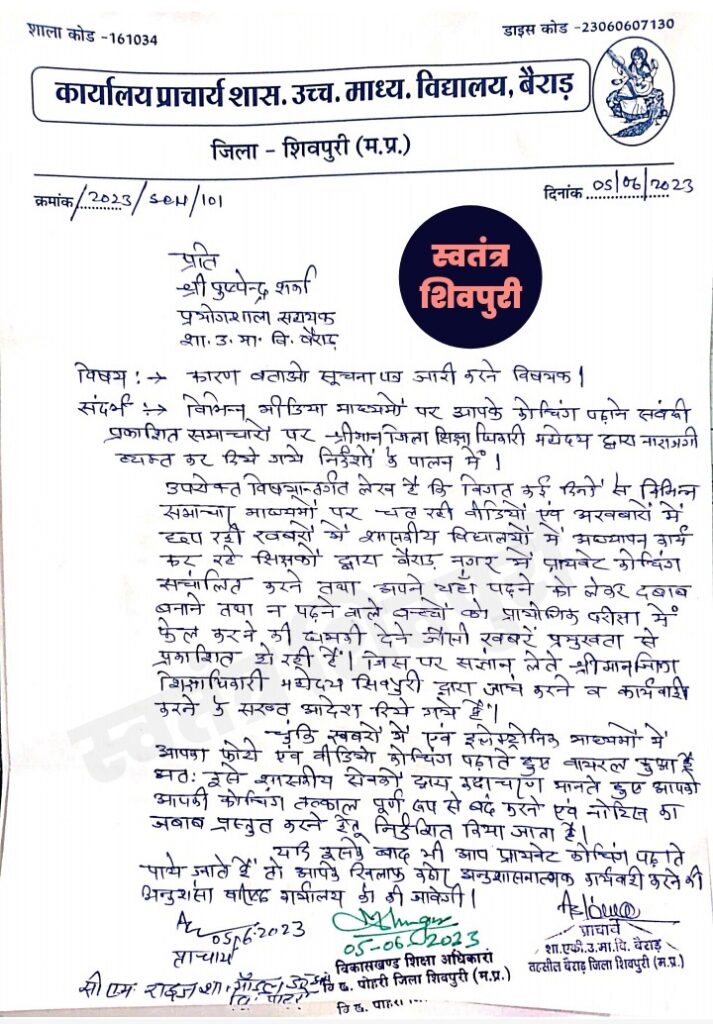 शाला कोड -161034
डाइस कोड -23060607130
कार्यालय प्राचार्य शास. उच्च. माध्य. विद्यालय, बैराड़
जिला - शिवपुरी (म.प्र.)
क्रमांक/2023/SCN/101
दिनांक 05/06/2023
स्वतंत्र
शिवपुरी
प्रति
श्री पुष्पेन्द्र शर्मा
प्रयोगशाला सहायक
शा. उ. मा. वि. बैराड़
विषय :→ कारण बताओ सूचना पत्र जारी करने विषयक।
संदर्भ :→ विभिन्न मीडिया माध्यमों पर आपके कोचिंग पढ़ाने संबंधी
प्रकाशित समाचारों पर श्रीमान जिला शिक्षा धिकारी महोदय द्वारा नाराजगी
व्यक्त कर दिये गये निर्देशों के पालन में।
उपरोक्त विषयान्तर्गत लेख है कि विगत कई दिनों से विभिन्न
समाचा माध्यमों पर चल रही वीडियो एवं अखबारों में
छप रही खबरों में शासकीय विद्यालयों में अध्यापन कार्य
कर रहे शिक्षकों द्वारा बैराड़ नगर में प्रायवेट कोचिंग
संचालित करने तथा अपने यहाँ पढ़ने को लेकर दबाब
बनाने तथा न पढ़ने वाले बच्चों को प्रायोगिक परीक्षा में
फेल करने की धमकी देने जैसी खबरें प्रमुखता से
प्रकाशित हो रही हैं। जिस पर संज्ञान लेते श्रीमान जिला
शिक्षाधिकारी महोदय शिवपुरी द्वारा जांच करने व कार्यवाही
करने के सख्त आदेश दिये गये हैं।
चूंकि खबरों में एवं इलेक्ट्रोनिक माध्यमों में
आपका फोटो एवं वीडियो कोचिंग पढ़ाते हुए वायरल हुआ है
अतः इसे शासकीय सेवकों द्वारा कदाचरण मानते हुए आपको
आपकी कोचिंग तत्काल पूर्ण रूप से बंद करने एवं नोटिस का
जबाब प्रस्तुत करने हेतु निर्देशित किया जाता है।
यदि इसके बाद भी आप प्रायवेट कोचिंग पढ़ाते
पाये जाते हैं तो आपके खिलाफ कठोर अनुशासनात्मक कार्यवाही करने की
अनुशंसा वरिष्ठ कार्यालय को की जावेगी।
05.6.2023
प्राचार्य
सी एम राइज शा. मॉडल
05-06-2023
विकासखण्ड शिक्षा अधिकारी
वि ख. पोहरी जिला शिवपुरी (म.प्र.)
वि ख. पोहरी जिला शिव
प्राचार्य
शा.एकी.उ.मा.वि. बैराड़
तहसील बैराड़ जिला शिवपुरी (म.प्र.)
स्वतंत्र शिवपुरी